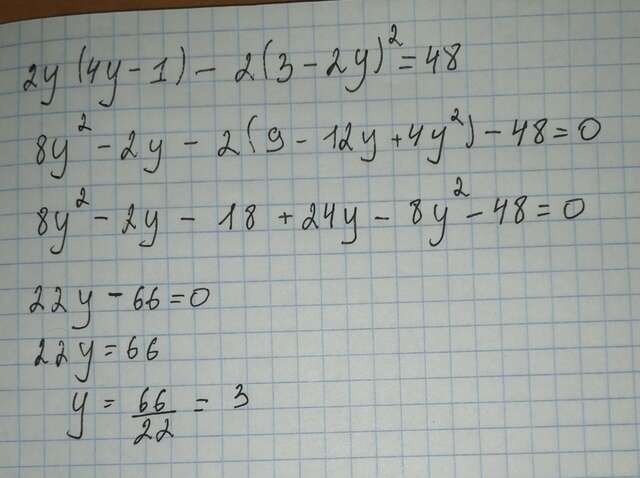 2y(4y-1)-2(3-2y)²=48
8y²-2y-2(9-12y+4y²)-48=0
8y²-2y-18+24y-8y²-48=0
22y-66=0
22y=66
y=66/22=3